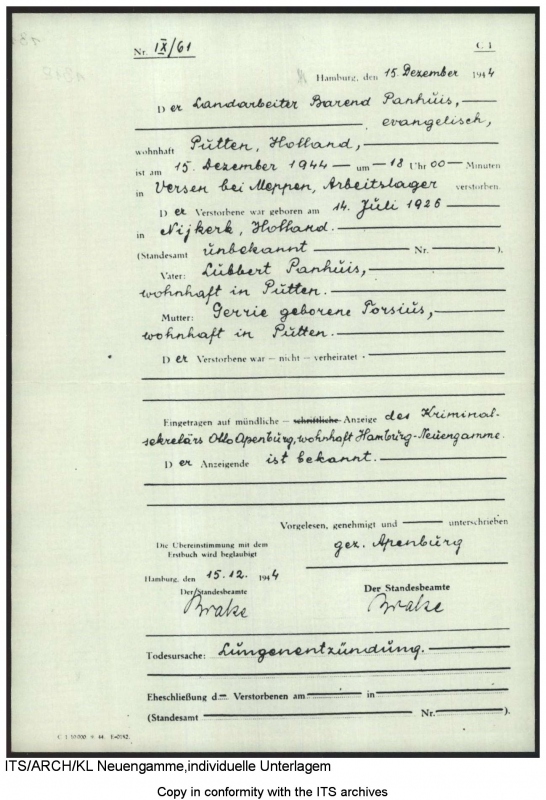 Nr. IX/61 C I
Hamburg, den 15. Dezember 1944
Der Landarbeiter Barend Panhuis,
evangelisch,
wohnhaft Putten, Holland,
ist am 15. Dezember 1944 um 18 Uhr 00 Minuten
in Versen bei Meppen, Arbeitslager verstorben.
Der Verstorbene war geboren am 14. Juli 1926
in Nijkerk, Holland.
(Standesamt unbekannt Nr. ).
Vater: Lubbert Panhuis,
wohnhaft in Putten.
Mutter: Gerrie geborene Torsius,
wohnhaft in Putten.
Der Verstorbene war – nicht – verheiratet
Eingetragen auf mündliche – schriftliche Anzeige des Kriminal-
sekretärs Otto Apenburg, wohnhaft Hamburg-Neuengamme.
Der Anzeigende ist bekannt.
Vorgelesen, genehmigt und unterschrieben
Die Übereinstimmung mit dem
Erstbuch wird beglaubigt
gez. Apenburg
Hamburg, den 15.12. 1944
Der Standesbeamte
Brake
Der Standesbeamte
Brake
Todesursache: Lungenentzündung.
Eheschließung d Verstorbenen am in
(Standesamt Nr. ).
ITS/ARCH/KL Neuengamme,individuelle Unterlagem
Copy in conformity with the ITS archives